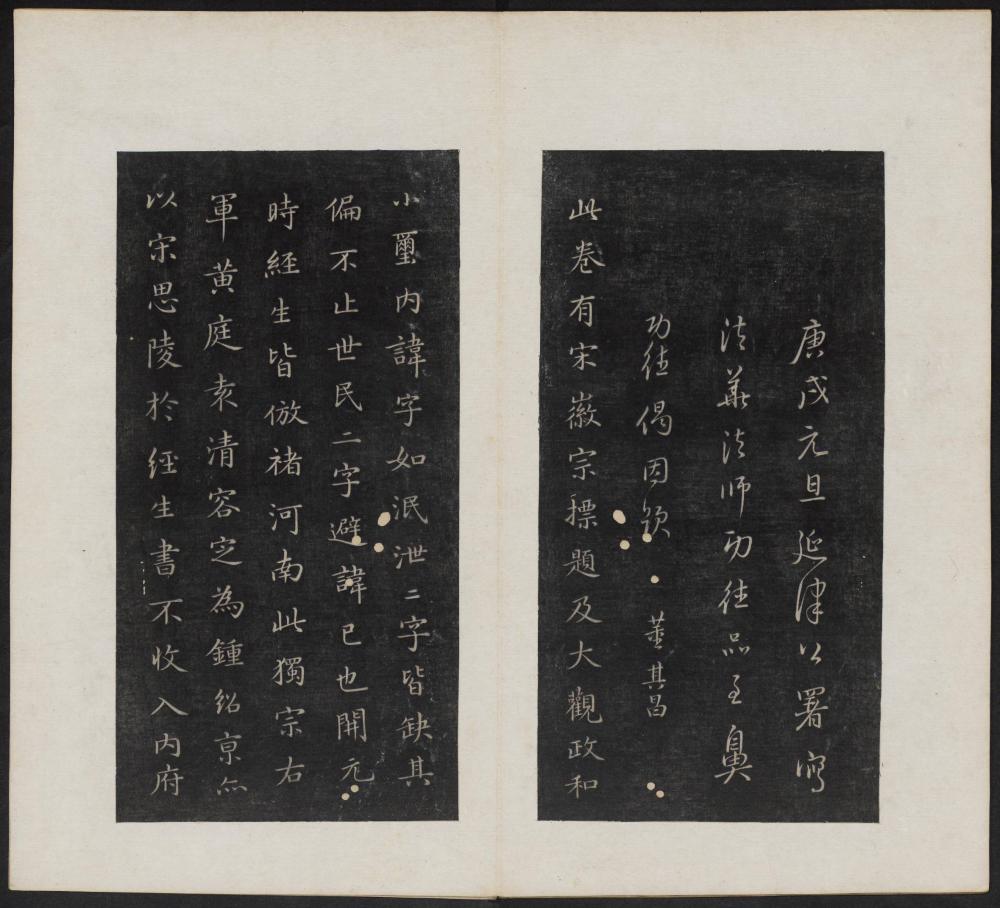 庚戌元旦延津公署寫
法華法師功德品至鼻
功德偈因 董其昌
此卷有宋徽宗摽題及大觀政和
小璽內諱字如泯泄二字皆缺其
偏不止世民二字避諱已也開元
時經生皆倣褚河南此獨宗右
軍黃庭袁清容定為鍾紹京亦
以宋思陵於經生書不收入內府